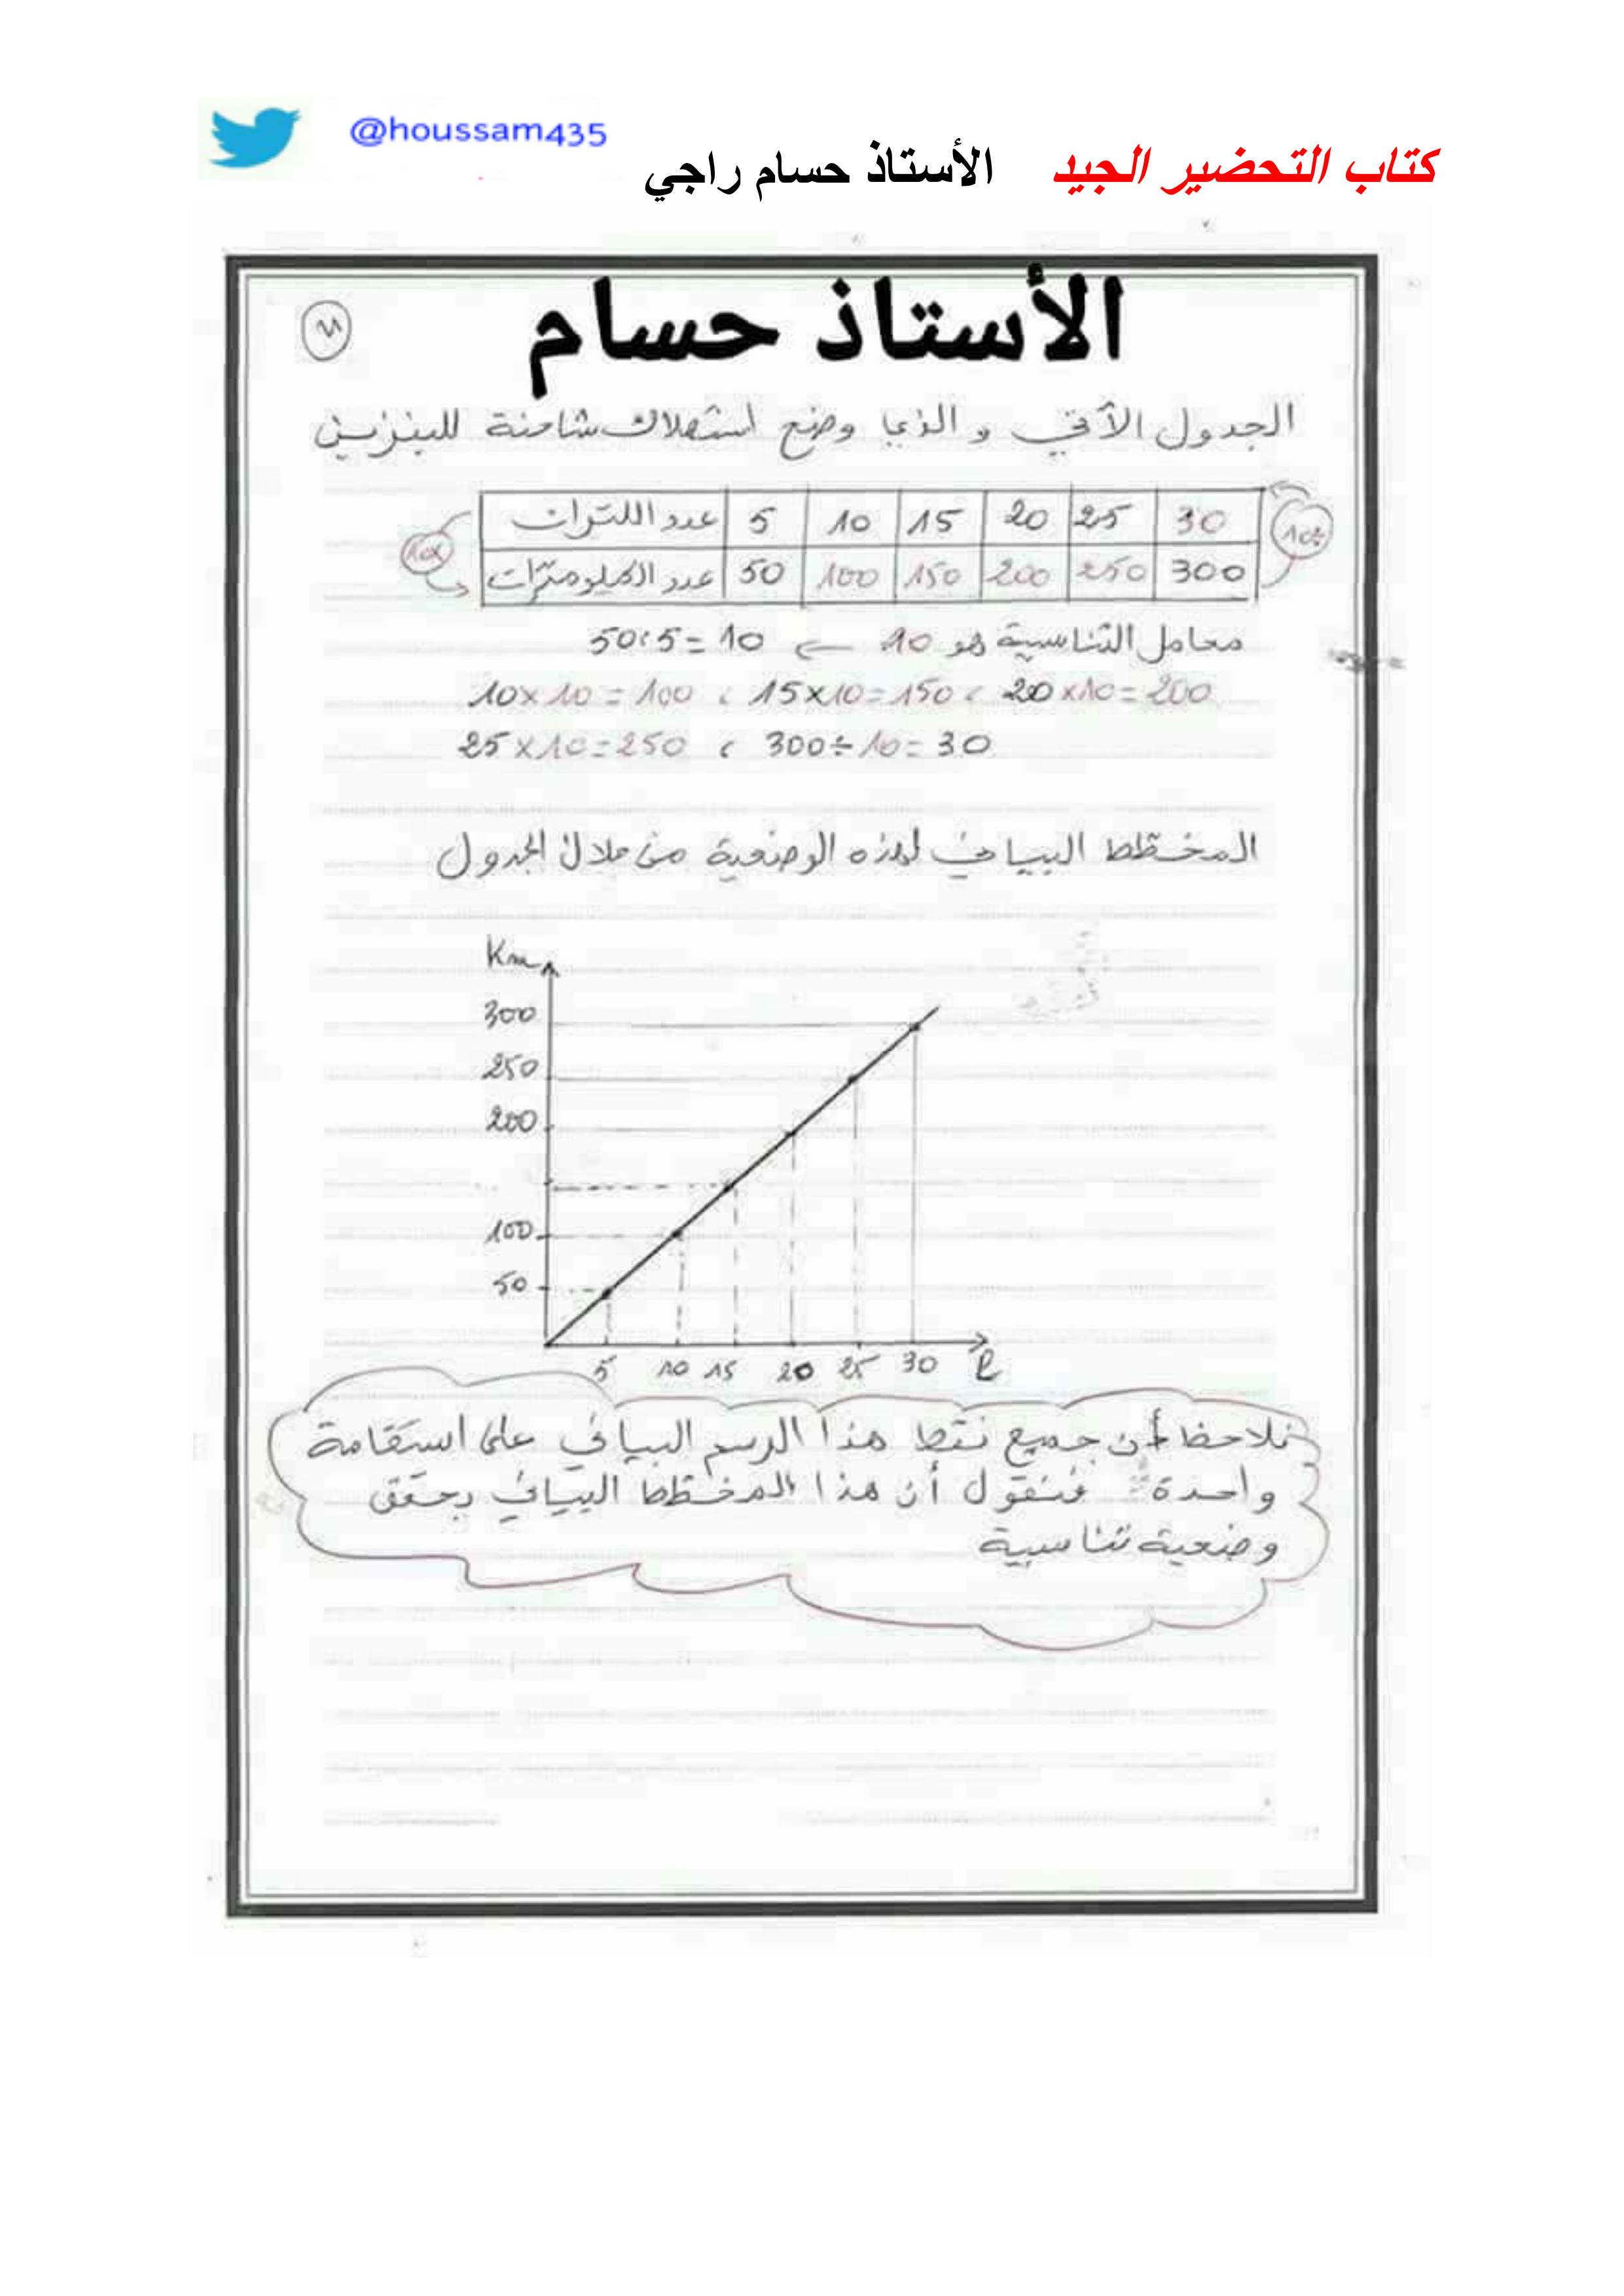 @houssam435
كتاب التحضير الجيد الأستاذ حسام راجي
الأستاذ حسام
الجدول الآتي و الذي وضع استهلاك شاحنة للبنزين
عدد اللترات 5 10 15 20 25 30
10x 10÷
عدد الكيلومترات 50 100 150 200 250 300
معامل التناسبية هو 10 ← 50:5=10
10x10=100 ، 15x10=150 ، 20x10=200
25x10=250 ، 300÷10=30
المخطط البياني لهذه الوضعية من خلال الجدول
Km
300
250
200
100
50
5 10 15 20 25 30 l
نلاحظ أن جميع نقط هذا الرسم البياني على استقامة
واحدة فنقول أن هذا المخطط البياني يحقق
وضعية تناسبية